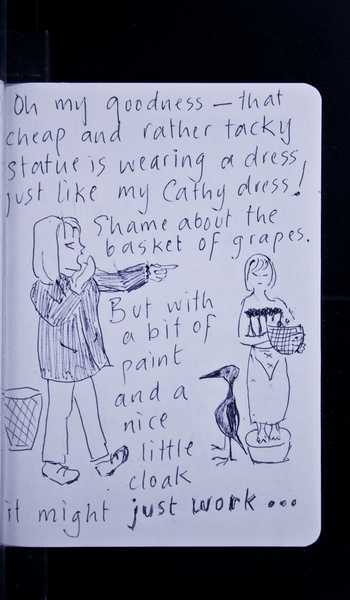 Oh my goodness – that
cheap and rather tacky
statue is wearing a dress
just like my Cathy dress!
Shame about the
basket of grapes.
But with
a bit of
paint
and a
nice
little
cloak
it might just work ...